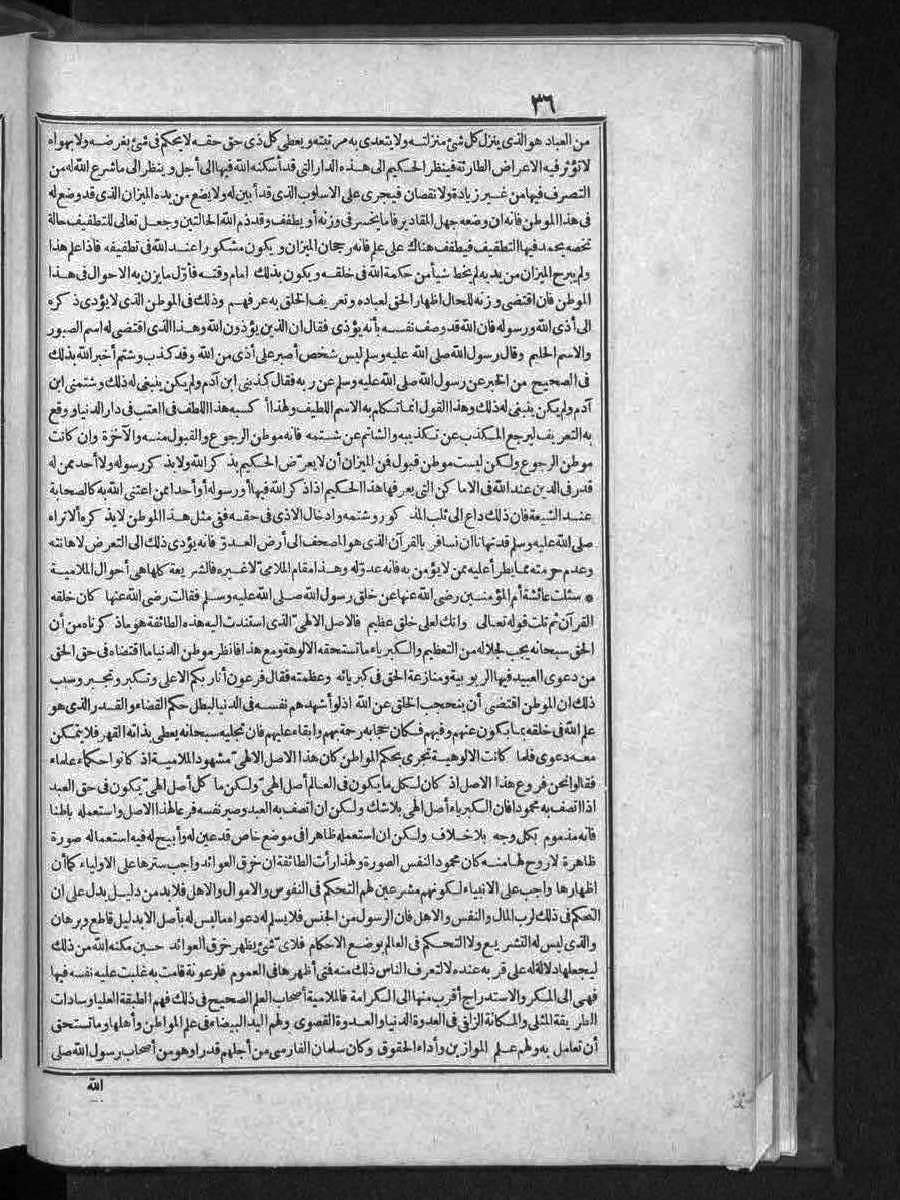 ٣٦
من العباد هو الذى ينزل كل شئ منزلته ولا يتعدى به مرتبته ويعطى كل ذى حق حقه لا يحكم فى شئ بغرضه ولا بهواه
لا تؤثر فيه الاعراض الطارئة فينظر الحكيم الى هذه الدار التى قد أسكنه الله فيها الى أجل وينظر الى ما شرع الله له من
التصرف فيها من غير زيادة ولا نقصان فيجرى على الاسلوب الذى قد أبين له ولا يضع من يده الميزان الذى قد وضع له
فى هذا الموطن فانه ان وضعه جهل المقادير فاما يخسر فى وزنه أو يطفف وقد ذم الله الحالتين وجعل تعالى للتطفيف حالة
تخصه يحمد فيها التطفيف فيطفف هناك على علم فانه رجحان الميزان ويكون مشكورا عند الله فى تطفيفه فاذا علم هذا
ولم يبرح الميزان من يديه لم يخط شيأ من حكمة الله فى خلقه ويكون بذلك امام وقته فأوّل ما يزن به الاحوال فى هذا
الموطن فان اقتضى وزنه للحال اظهار الحق لعباده وتعريف الخلق به عرفهم وذلك فى الموطن الذى لا يؤدى ذكره
الى أذى الله ورسوله فان الله قد وصف نفسه بأنه يؤذى فقال ان الذين يؤذون الله وهذا الذى اقتضى له اسم الصبور
والاسم الحليم وقال رسول الله صلى الله عليه وسلم ليس شخص أصبر على أذى من الله وقد كذب وشتم أخبر الله بذلك
فى الصحيح من الخبر عن رسول الله صلى الله عليه وسلم عن ربه فقال كذبنى ابن آدم ولم يكن ينبغى له ذلك وشتمنى ابن
آدم ولم يكن ينبغى له ذلك وهذا القول انما تكلم به الاسم اللطيف ولهذا أكسبه هذا اللطف فى العتب فى دار الدنيا ووقع
به التعريف ليرجع المكذب عن تكذيبه والشاتم عن شتمه فانه موطن الرجوع والقبول منه والآخرة وان كانت
موطن الرجوع ولكن ليست موطن قبول فمن الميزان أن لا يعرّض الحكيم بذكر الله ولا بذكر رسوله ولا أحد ممن له
قدر فى الدين عند الله فى الاماكن التى يعرفها هذا الحكيم اذا ذكر الله فيها أو رسوله أو أحدا ممن اعتنى الله به كالصحابة
عند الشيعة فان ذلك داع الى ثلب المذكور وشتمه وادخال الاذى فى حقه ففى مثل هذا الموطن لا يذكره ألا تراه
صلى الله عليه وسلم قد نهانا أن نسافر بالقرآن الذى هو المصحف الى أرض العدوّ فانه يؤدى ذلك الى التعرض لاهانته
وعدم حرمته مما يطرأ عليه ممن لا يؤمن به فانه عدوّ له وهذا مقام الملامىّ لا غيره فالشريعة كلها هى أحوال الملامية
* سئلت عائشة أم المؤمنين رضى الله عنها عن خلق رسول الله صلى الله عليه وسلم فقالت رضى الله عنها كان خلقه
القرآن ثم تلت قوله تعالى وانك لعلى خلق عظيم فالاصل الالهىّ الذى استندت اليه هذه الطائفة هو ما ذكرناه من أن
الحق سبحانه يجب لجلاله من التعظيم والكبرياء ما تستحقه الالوهة ومع هذا فانظر موطن الدنيا ما اقتضاه فى حق الحق
من دعوى العبيد فيها الربوبية ومنازعة الحق فى كبريائه وعظمته فقال فرعون أنا ربكم الاعلى وتكبر وتجبر وسبب
ذلك ان الموطن اقتضى أن ينحجب الخلق عن الله اذ لو أشهدهم نفسه فى الدنيا لبطل حكم القضاء والقدر الذى هو
علم الله فى خلقه بما يكون عنهم وفيهم فكان حجابه رحمة بهم وابقاء عليهم فان تجليه سبحانه يعطى بذاته القهر فلا يتمكن
معه دعوى فلما كانت الالوهية تجرى بحكم المواطن كان هذا الاصل الالهىّ مشهود الملامية اذ كانوا حكماء علماء
فقالوا نحن فروع هذا الاصل اذ كان لكل ما يكون فى العالم أصل الهىّ ولكن ما كل أصل الهىّ يكون فى حق العبد
اذا اتصف به محمودا فان الكبرياء أصل الهى بلاشك ولكن ان اتصف به العبد وصير نفسه فرعا لهذا الاصل واستعمله باطنا
فانه مذموم بكل وجه بلا خلاف ولكن ان استعمله ظاهرا فى موضع خاص قد عين له وأبيح له فيه استعماله صورة
ظاهرة لا روح لها منه كان محمود النفس الصورة ولهذا رأت الطائفة ان خرق العوائد واجب سترها على الاولياء كما أن
اظهارها واجب على الانبياء لكونهم مشرعين لهم التحكم فى النفوس والاموال والاهل فلا بد من دليل يدل على ان
التحكم فى ذلك لرب المال والنفس والاهل فان الرسول من الجنس فلا يسلم له دعواه ما ليس له بأصل الا بدليل قاطع وبرهان
والذى ليس له التشريع ولا التحكم فى العالم بوضع الاحكام فلاىّ شئ يظهر خرق العوائد حين مكنه الله من ذلك
ليجعلها دلالة له على قربه عنده لا لتعرف الناس ذلك منه فتى أظهرها فى العموم فلرعونة قامت به غلبت عليه نفسه فيها
فهى الى المكر والاستدراج أقرب منها الى الكرامة فالملامية أصحاب العلم الصحيح فى ذلك فهم الطبقة العليا وسادات
الطريقة المثلى والمكانة الزلفى فى العدوة الدنيا والعدوة القصوى ولهم اليد البيضاء فى علم المواطن وأهلها وما تستحق
أن تعامل به ولهم علم الموازين وأداء الحقوق وكان سلمان الفارسى من أجلهم قدرا وهو من أصحاب رسول الله صلى
الله